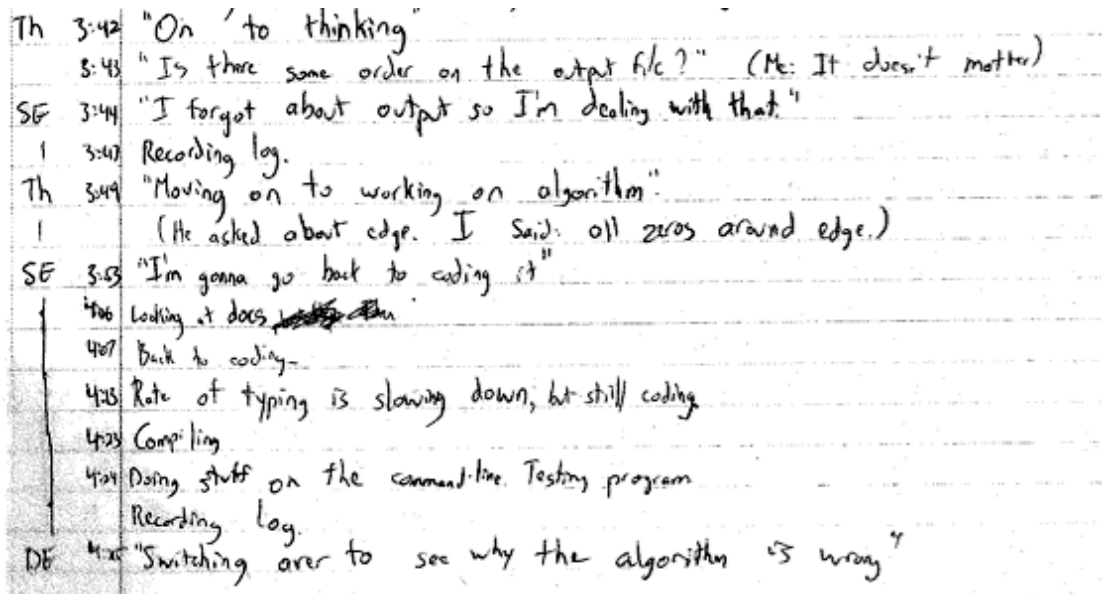 Th 3:42 "On to thinking"
3:43 "Is there some order on the output file?" (Me: It doesn't matter)
SE 3:44 "I forgot about output so I'm dealing with that."
| 3:47 Recording log.
Th 3:49 "Moving on to working on algorithm".
| (He asked about edge. I said: all zeros around edge.)
SE 3:53 "I'm gonna go back to coding it"
4:06 Looking at docs
4:07 Back to coding-
4:13 Rate of typing is slowing down, but still coding.
4:23 Compiling
4:24 Doing stuff on the command-line. Testing program
Recording log.
DE 4:25 "Switching over to see why the algorithm is wrong"